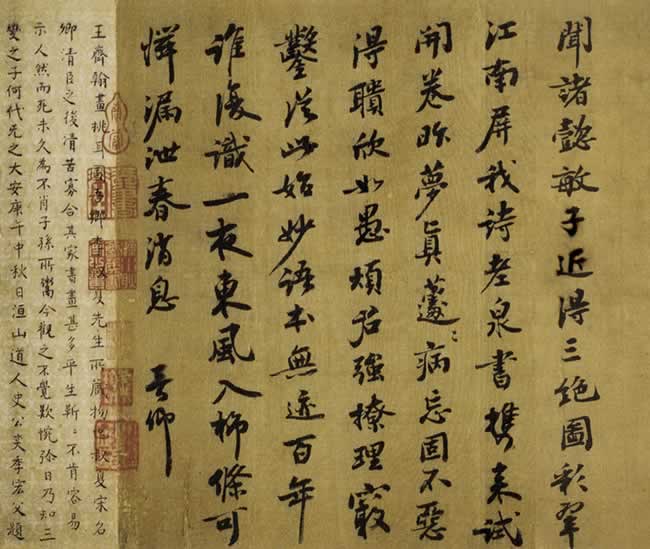 聞諸懿敏子近得三絶圖彩翠
江南屏我詩老泉書携來試
開卷昨夢真蘧〻病忘固不惡
得聵欣如愚煩君强撩理竅
鑿從此始妙語本無迹百年
誰復識一夜東風入柳條可
憚漏泄春消息 晉卿
王齊翰畫挑耳圖吾鄉李敬夏先生所藏物也敬夏宋名
卿清臣之後清苦寡合其家書畫甚多平生靳〻不肯容易
示人然而死未久為不肖子孫所鬻今觀之不覺歎惋弥日乃知三
變之子何代无之大安庚午中秋日洹山道人史公奕季宏父題